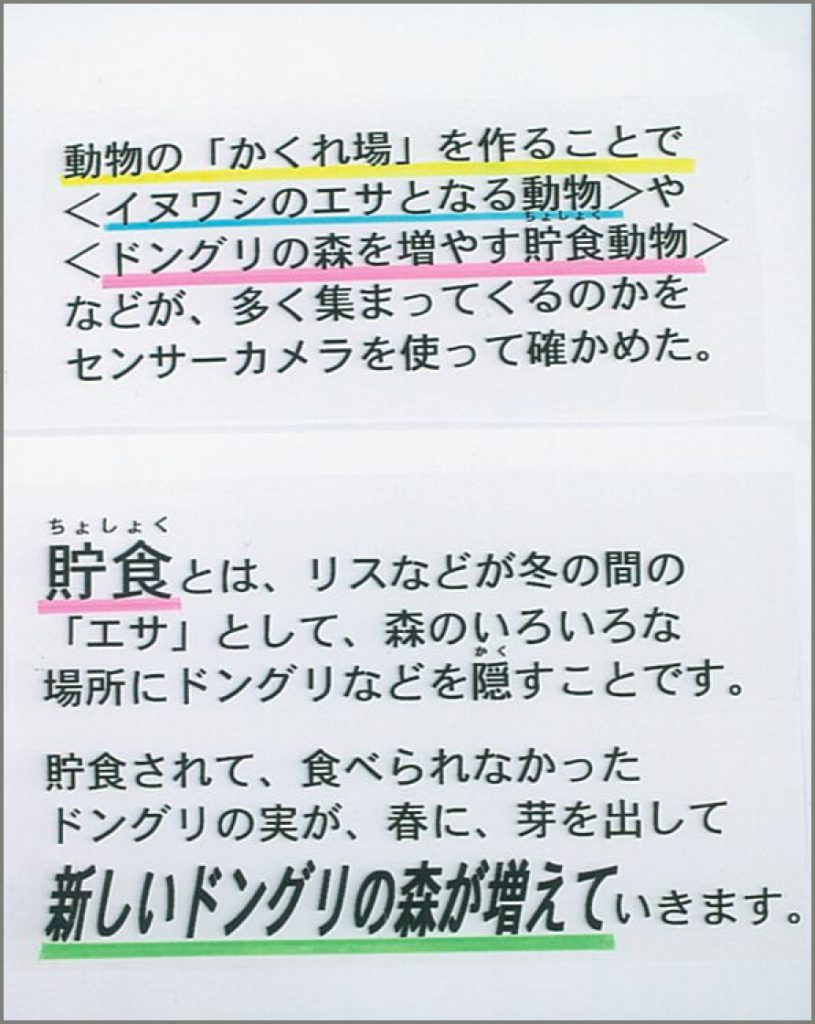 動物の「かくれ場」を作ることで
＜イヌワシのエサとなる動物＞や
ちょしょく
＜ドングリの森を増やす貯食動物＞
などが、多く集まってくるのかを
センサーカメラを使って確かめた。
ちょしょく
貯食とは、リスなどが冬の間の
「エサ」として、森のいろいろな
かく
場所にドングリなどを隠すことです。
貯食されて、食べられなかった
ドングリの実が、春に、芽を出して
新しいドングリの森が増えていきます。